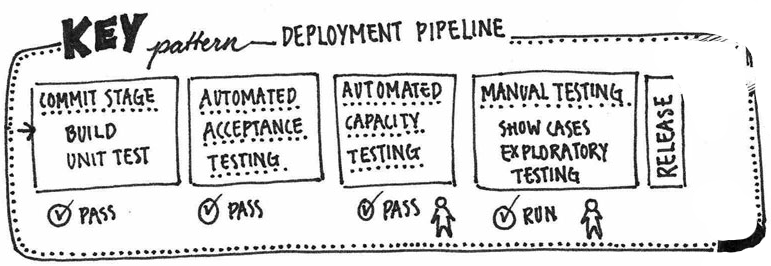 KEY pattern DEPLOYMENT PIPELINE
COMMIT STAGE
BUILD
UNIT TEST
PASS
AUTOMATED
ACCEPTANCE
TESTING
PASS
AUTOMATED
CAPACITY
TESTING
PASS
MANUAL TESTING
SHOW CASES
EXPLORATORY
TESTING
RUN
RELEASE